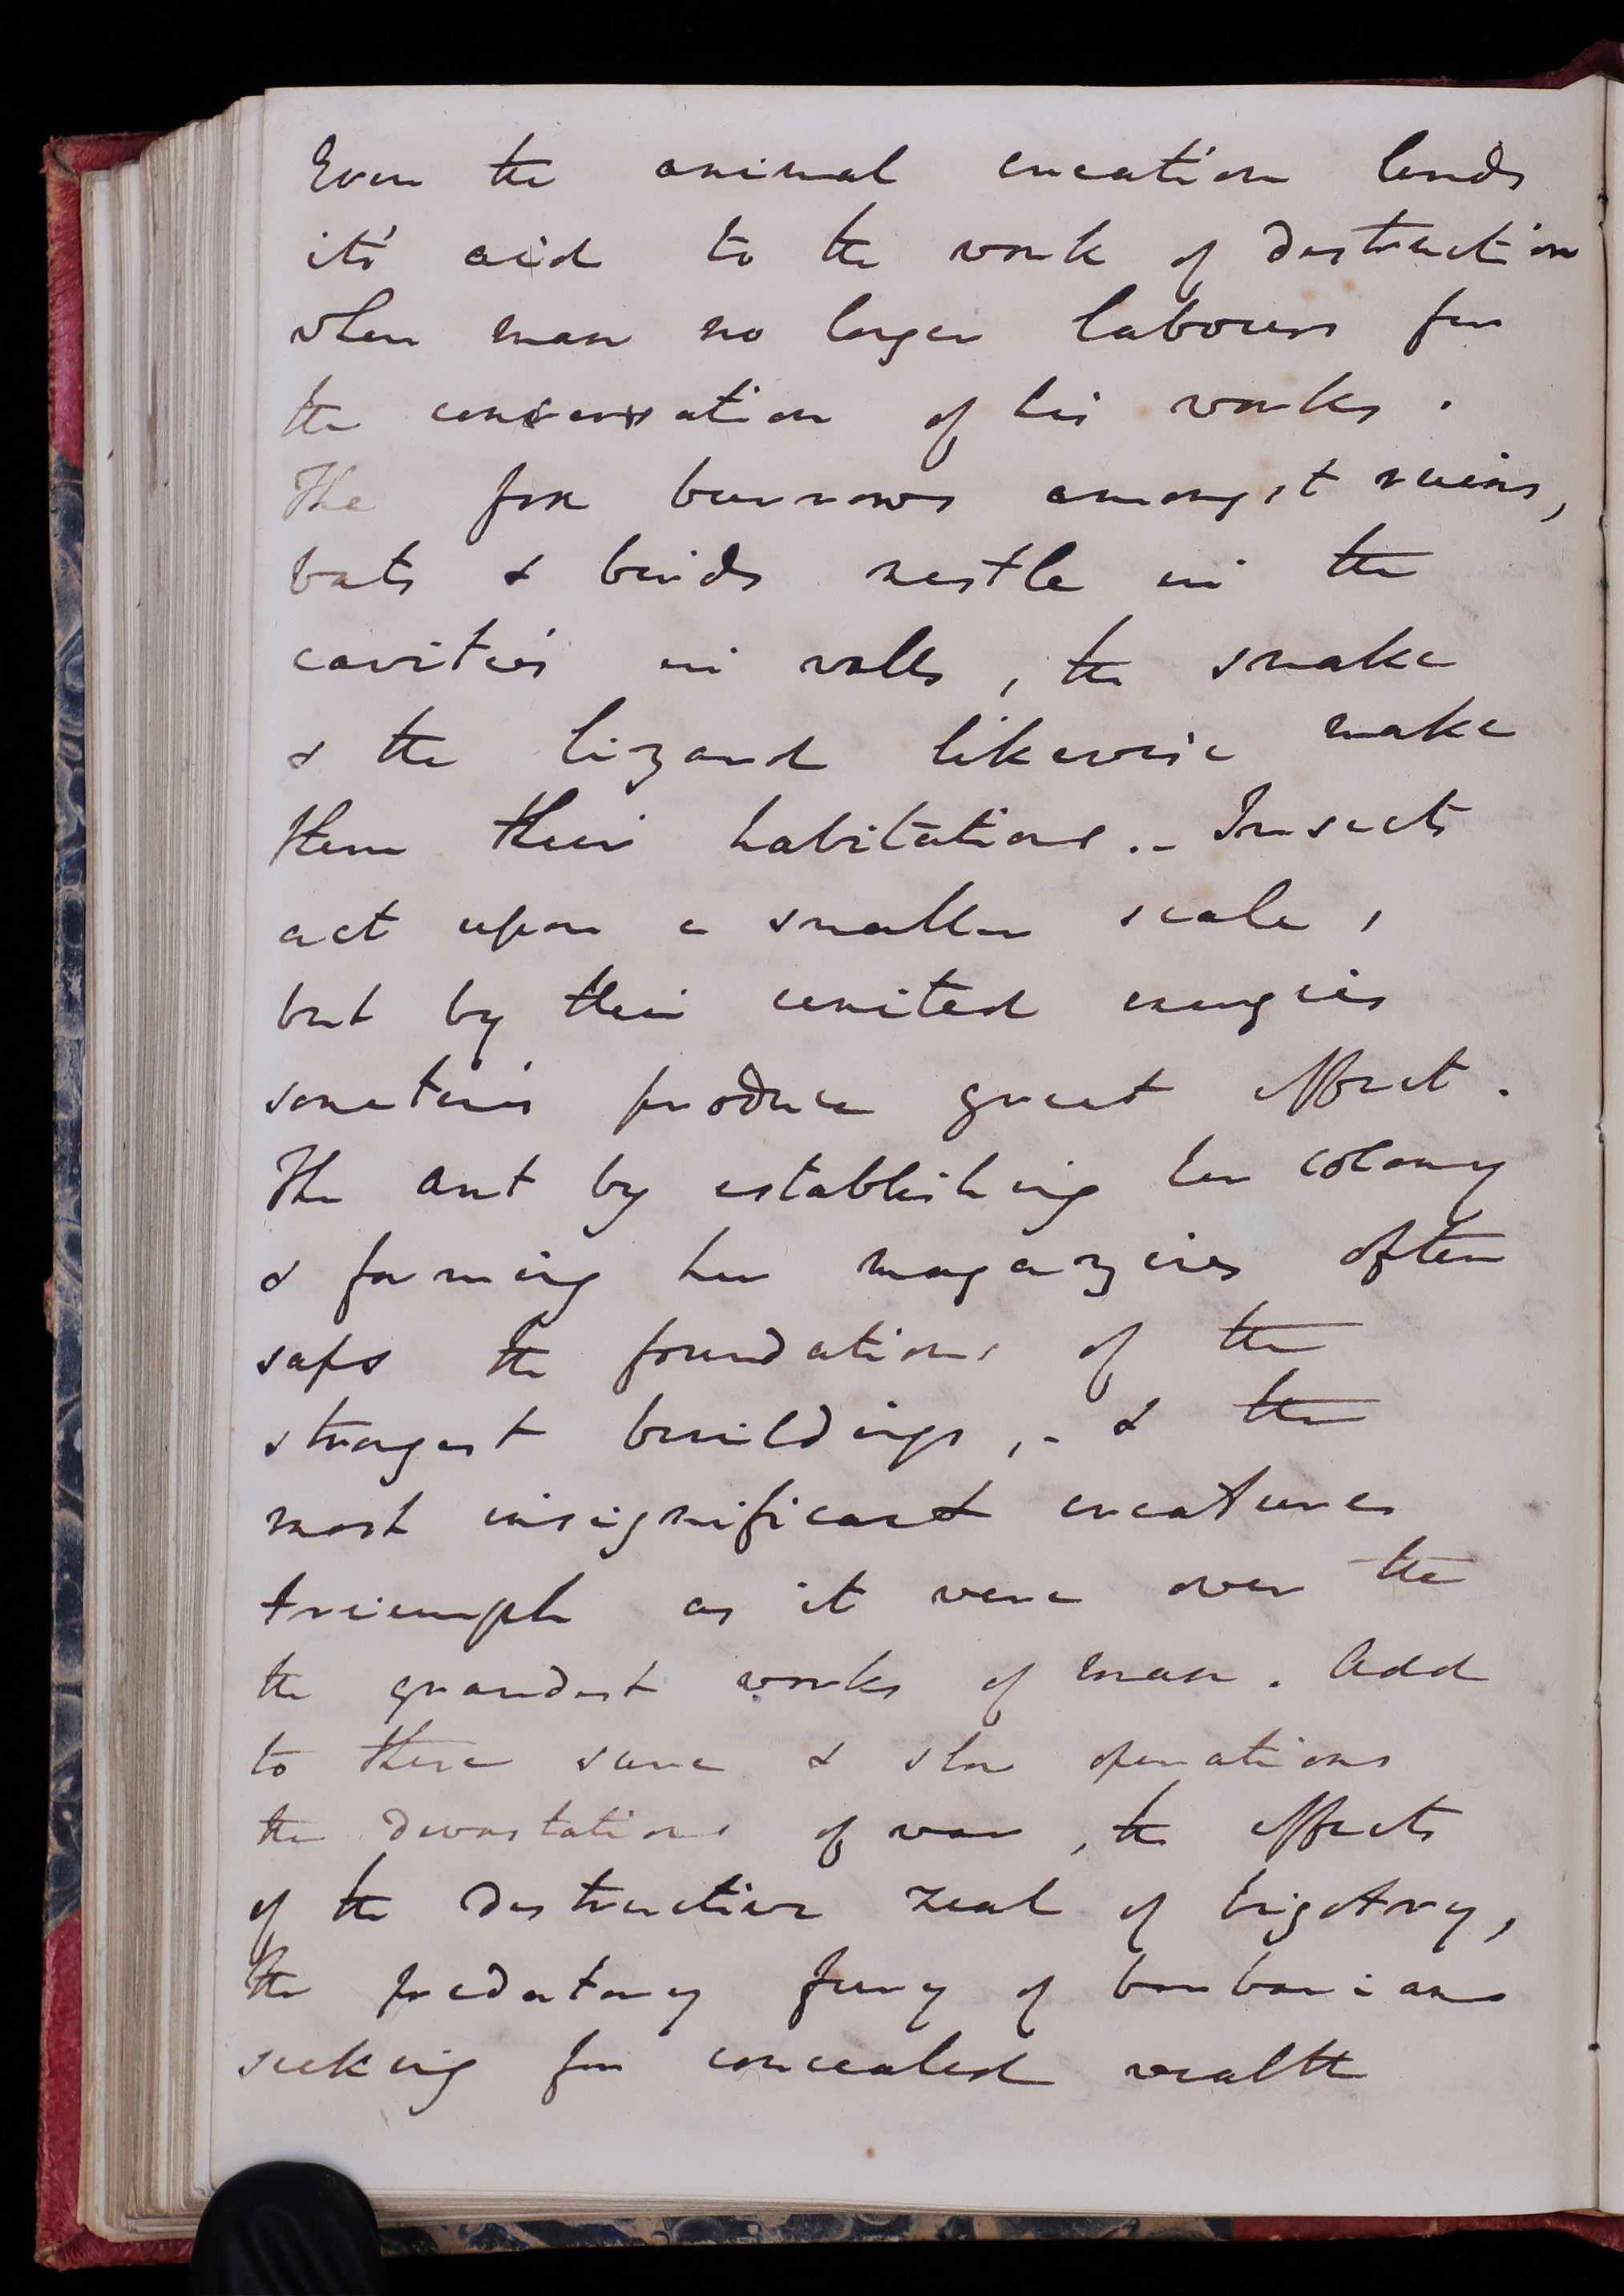 Even the animal creation lends
it's aid to the work of destruction
when man no longer labours for
the conservation of his works.
The fox burrows amongst ruins,
bats & birds nestle in the
cavities in walls, the snake
& the lizard likewise make
them their habitations.- Insects
act upon a smaller scale,
but by their united energies
sometimes produce great effect.
The ant by establishing her colony
& forming her magazines often
saps the foundations of the
strongest buildings,- & the
most insignificant creatures
triumph as it were over the
the grandest works of man. Add
to these sure & slow operations
the devastations of war, the effects
of the destructive zeal of bigotry,
the predatory fury of barbarians
seeking for concealed wealth